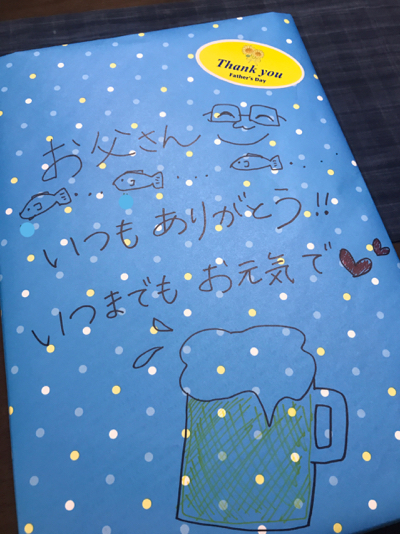 Thank you
Father's Day
お父さん
いつも ありがとう!!
いつまでも お元気で